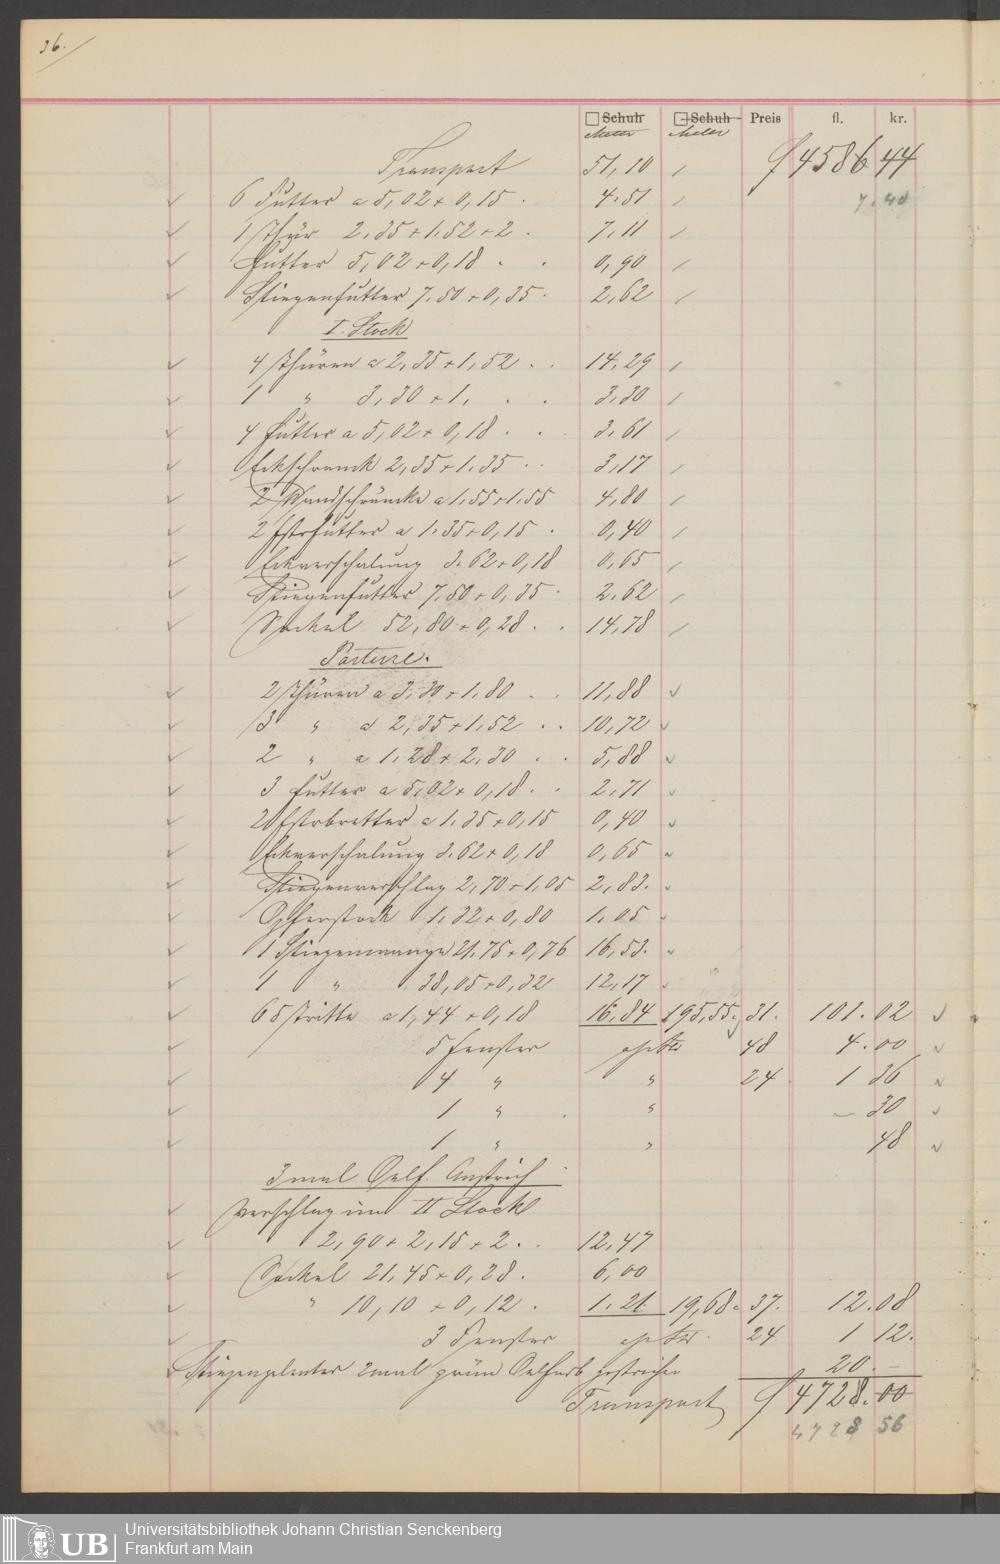 36.
□ Schuh □ Schuh Preis fl. kr.
Meter Meter
Transport 51,10 f 4586 44
6 Futter a 5,02 + 0,15 . 4.51
1 Thür 2.35 + 1.52 + 2 . 7.11
Futter 5,02 + 0,18 . . 0,90
Stiegenfutter 7.50 + 0,35 . 2,62
I. Stock
4 Thüren a 2,35 + 1,52 . . 14.29
1 " 3,30 + 1, . . 3.30
4 Futter a 5,02 + 0,18 . . 3.61
Eckschrank 2,35 + 1.35 . . 3,17
2 Wandschränke a 1.55 + 1.55 4,80
2 Fstrfutter a 1.35 + 0,15 . 0,40
Eckverschalung 3.62 + 0,18 0,65
Stiegenfutter 7,50 + 0,35 . 2.62
Sockel 52,80 + 0,28 . . 14,78
Parterre.
2 Thüren a 3,30 + 1.80 . . 11,88
3 " a 2,35 + 1,52 . . 10,72
2 " a 1.28 + 2.30 . . 5,88
3 Futter a 5,02 + 0,18 . . 2.71
2 Fstrbretter a 1.35 + 0,15 0,40
Eckverschalung 3.62 + 0,18 0,65
Stiegenverschlag 2,70 + 1,05 2,83.
Opferstock 1,32 + 0,80 1.05
1 Stiegenwange 21.75 + 0,76 16,53.
1 " 38,05 + 0,32 12,17
65 Tritte a 1,44 + 0,18 16,84 195,55. 31. 101.02
5 Fenster 48 4.00
4 " " 24 1 36
1 " . " — 30
1 " " 48
3 mal Oelf. Anstrich
Verschlag im II Stock
2,90 + 2,15 + 2 . . 12.47
Sockel 21.45 + 0,28 . 6,00
" 10,10 + 0,12 . 1.21 19,68. 37. 12.08
3 Fenster 24 1 12.
Stiegengelender 2mal grün Oelfarb gestrichen 20.—
Transport f 4728.00
4728 56
Universitätsbibliothek Johann Christian Senckenberg
Frankfurt am Main
UB